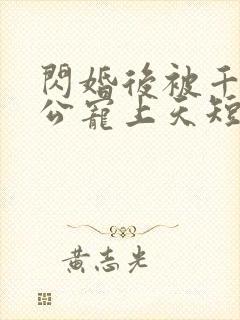 閃婚後被千
公寵上天短
黃志光